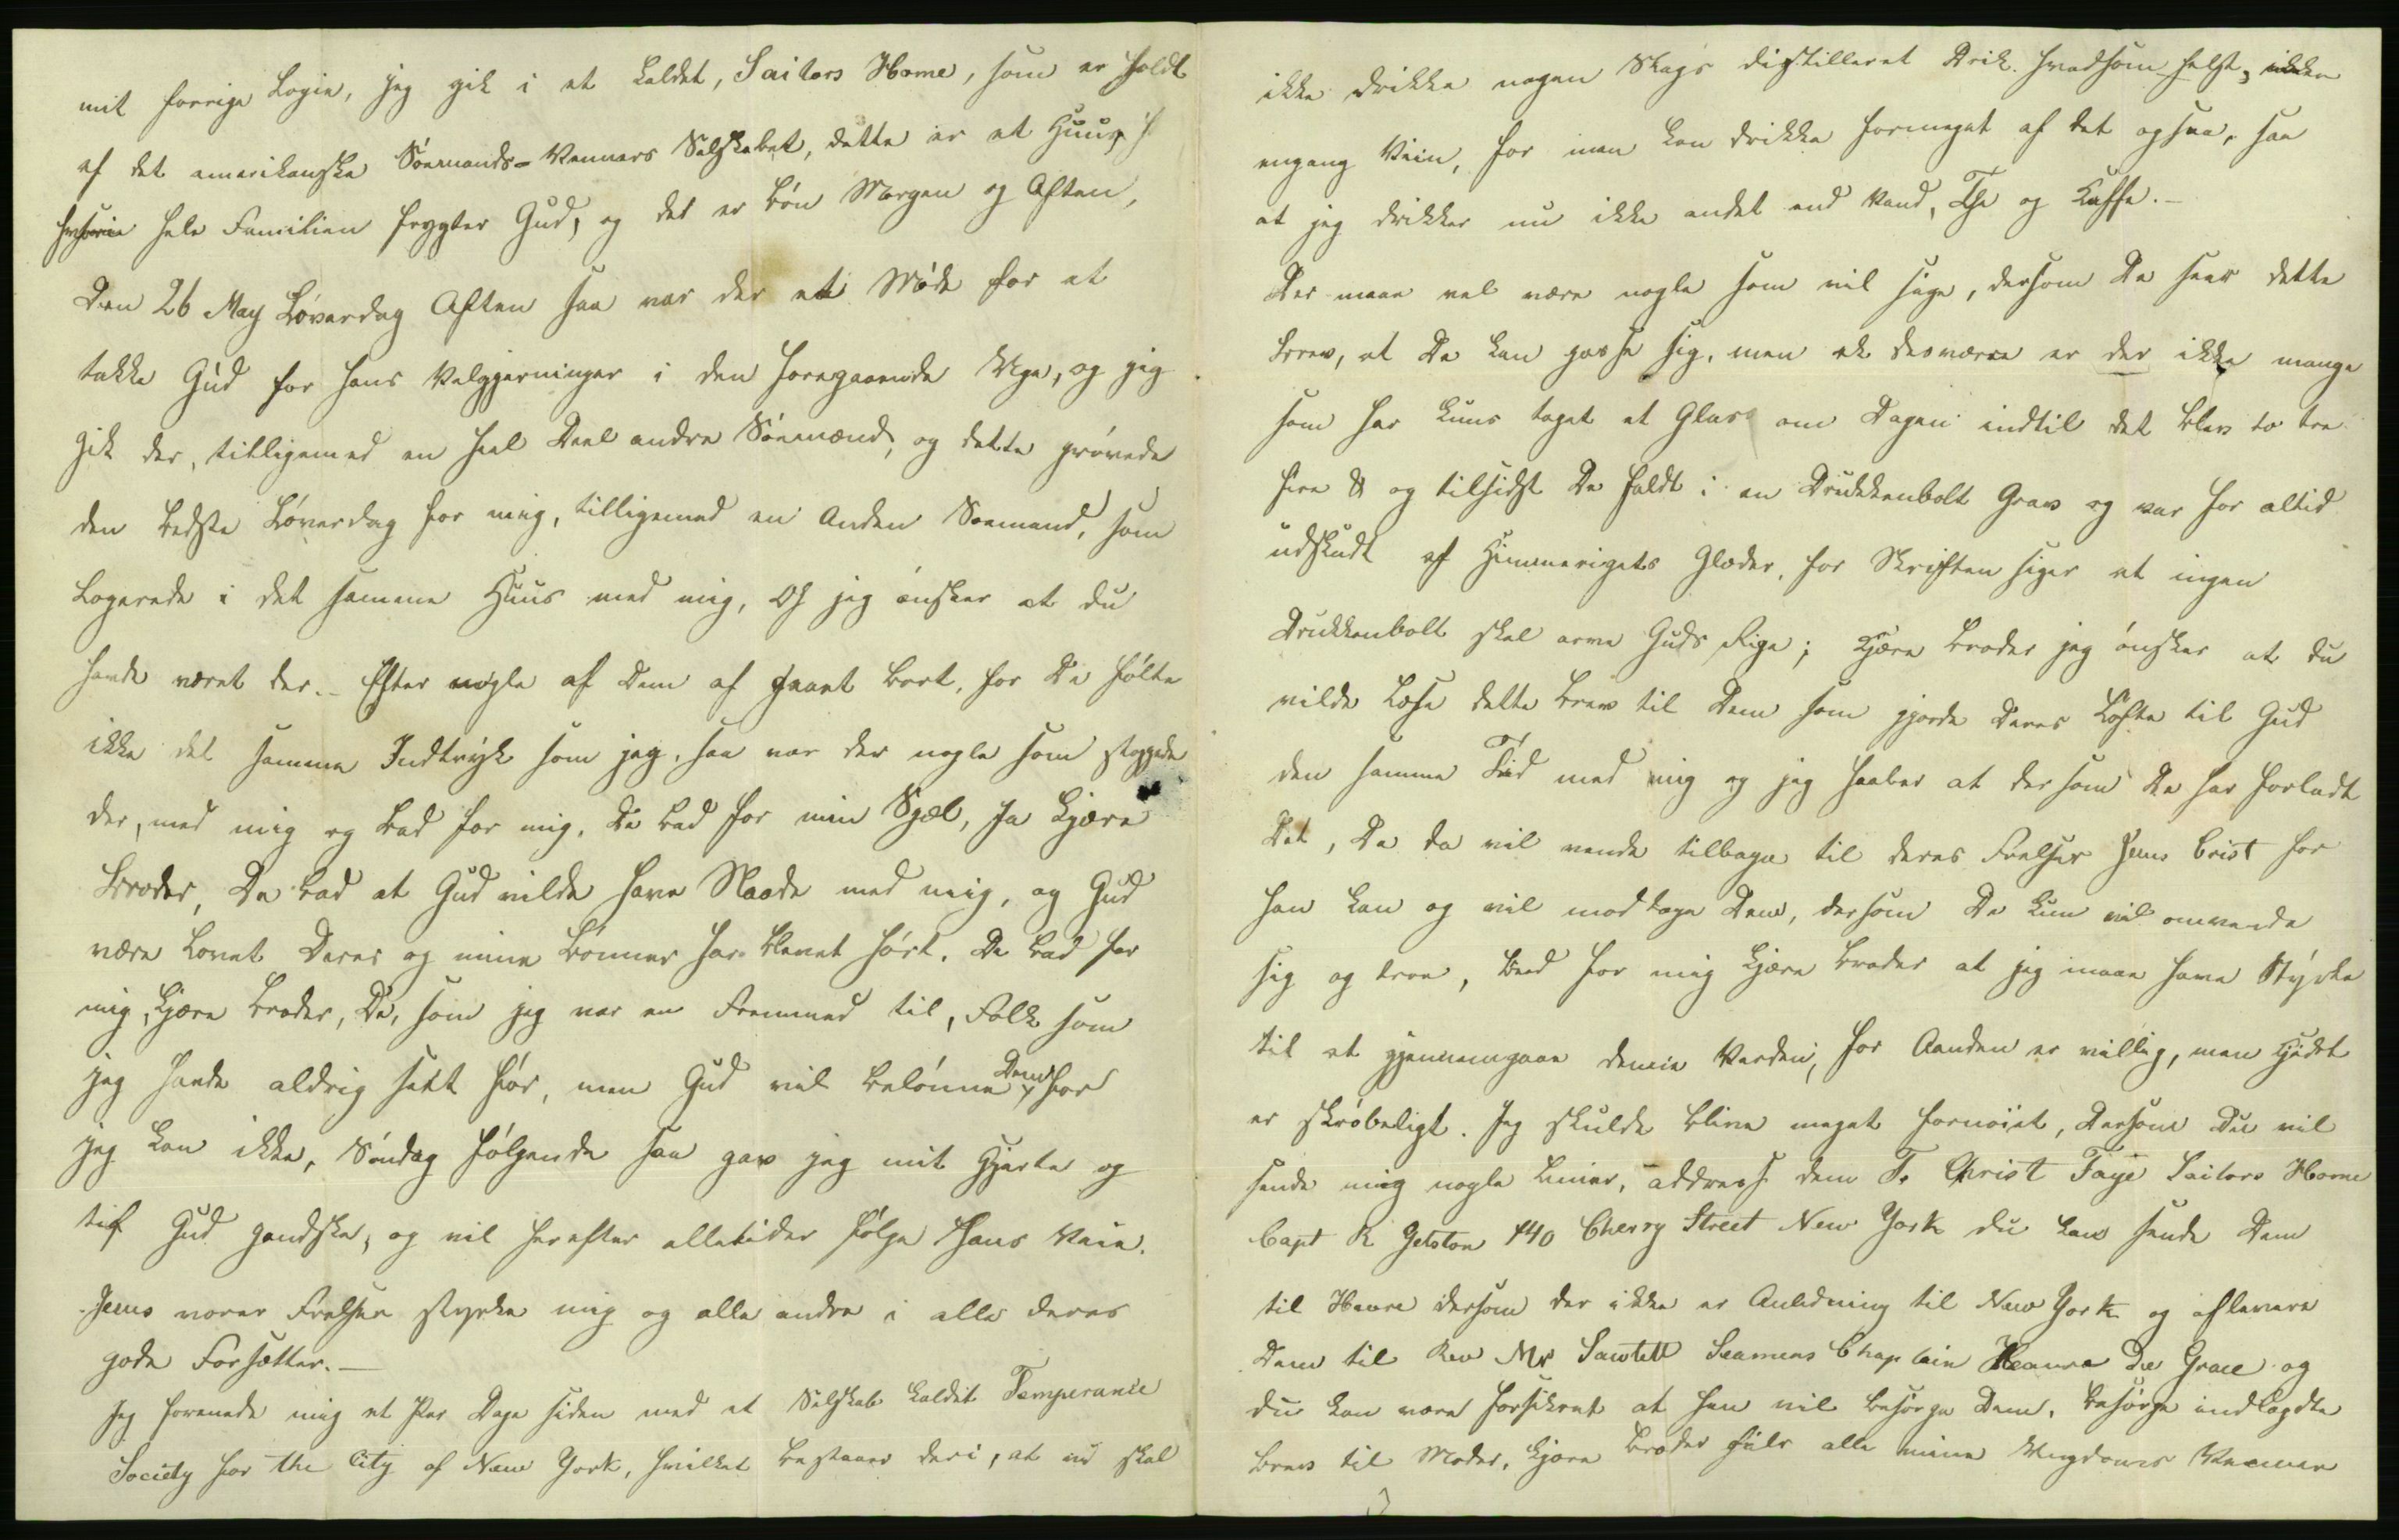 mit forrige Logie, jeg gik i et kaldet, Sailors Home, som er holdt
af det amerikanske Söemands-Venners Selskabet, dette er et Huus,
hele Familien frygter Gud, og det er bön Morgen og Aften,
Den 26 May Löverdag Aften saa var der et Möde for at
takke Gud for hans Velgjerninger i den foregaaende Uge, og jeg
gik der, tilligemed en heel Deel andre Söemænd, og dette prövede
den bedste Löverdag for mig, tilligemed en Anden Soemand, som
Logerede i det samme Huus med mig, Og jeg önsker at du
havde været der. – Efter nogle af Dem af gaaet bort, for De fölte
ikke det samme Indtryk som jeg, saa var der nogle som stoppede
der, med mig og bad for mig, De bad for min Sjæl, Ja kjære
Broder, De bad at Gud vilde have Naade med mig, og Gud
være Lovet Deres og mine bönner har blevet hört. De bad for
mig, kjære broder, De, som jeg var en Fremmed til, Folk som
jeg havde aldrig sett för, men Gud vil belönne Dem for
jeg kan ikke, Söndag fölgende saa gav jeg mit Hjerte og
til Gud gandske, og vil herefter alletider fölge Hans Veie.
Jesus vorer Frelser styrke mig og alle andre i alle deres
gode Forsætter. –
Jeg forenede mig et Par Dage siden med et Selskab kaldet Temperance
Society for the City of New York, hvilket bestaaer deri, at vi skal
ikke drikke nogen Slags distilleret Drik hvadsomhelst, ikke
engang Viin, for man kan drikke formeget af det ogsaa, saa
at jeg drikker nu ikke andet end Vand, The og Kaffe. –
Der maae vel være nogle som vil sige, dersom De saae dette
brev, at De kan passe sig, men ak desværre er der ikke mange
som har kuns taget et Glas om Dagen indtil det blev to tre
fire & og tilsidst De faldt i en Drukkenbolt Grav og var for altid
udskudt af Himmerigets Glæder, for Skriften siger at ingen
Drukkenbolt skal arve Guds Rige; Kjære broder jeg önsker at du
vilde Læse dette brev til Dem som gjorde Deres Löfte til Gud
den samme Tid med mig og jeg haaber at dersom De har forladt
Det, De da vil vende tilbage til deres Frelser Jesus Crist for
han kan og vil modtage Dem, dersom De kun vil omvende
sig og troe, beed for mig kjære broder at jeg maae have Styrke
til at gjennemgaae denne Verden, for Aanden er villig, men Kjödet
er skröbeligt. Jeg skulde blive meget fornöiet, Dersom Du vil
sende mig nogle Linier, address dem T. Christ Faye Sailors Home
Capt R Gelston 140 Cherry Street New York du kan sende Dem
til Havre dersom der ikke er Anledning til New York og aflevere
Dem til Rev Mr Sawtell Seamens Chaplain Havre De Grace og
du kan være forsikret at han vil besörge Dem, besörge indlagdte
brev til Moder, kjære broder hils alle mine Ungdoms Venner